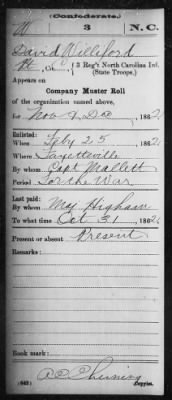 (Confederate.)
W 3 N. C.
David Williford
Pt, Co. , 3 Reg't North Carolina Inf.
(State Troops.)
Appears on
Company Muster Roll
of the organization named above,
for Nov & Dec, 1862.
Enlisted:
When Feby 25, 1862
Where Fayetteville
By whom Capt Mallett
Period For the War
Last paid:
By whom Maj Higham
To what time Oct 31, 1862
Present or absent Present
Remarks:
Book mark:
(642) Copyist.